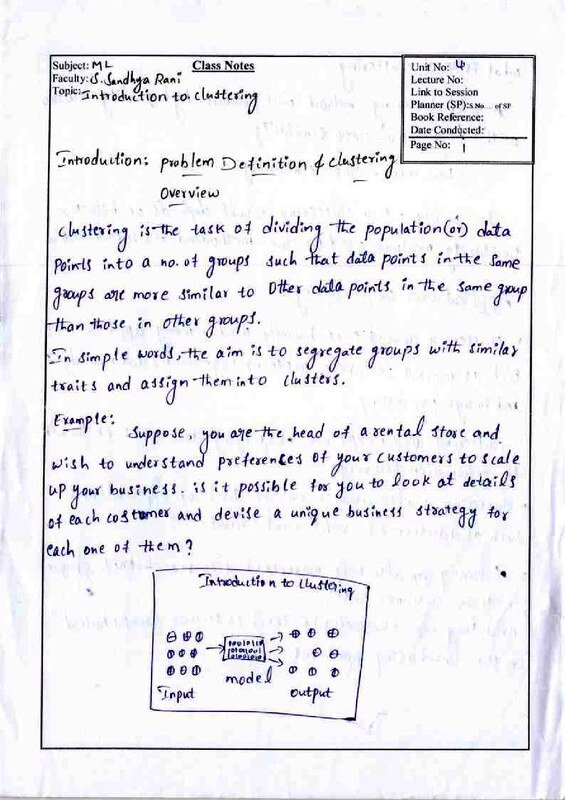 Subject: ML
Class Notes
Faculty: S. Sandhya Rani
Topic: Introduction to clustering
Unit No: 4
Lecture No:
Link to Session
Planner (SP): S.No.... of SP
Book Reference:
Date Conducted:
Page No: 1
Introduction: problem Definition & clustering
Overview
Clustering is the task of dividing the population (or) data
points into a no. of groups such that data points in the same
groups are more similar to other data points in the same group
than those in other groups.
In simple words, the aim is to segregate groups with similar
traits and assign them into clusters.
Example:
Suppose, you are the head of a rental store and
wish to understand preferences of your customers to scale
up your business. is it possible for you to look at details
of each costomer and devise a unique business strategy for
each one of them?
Introduction to clustering
model
Input
output